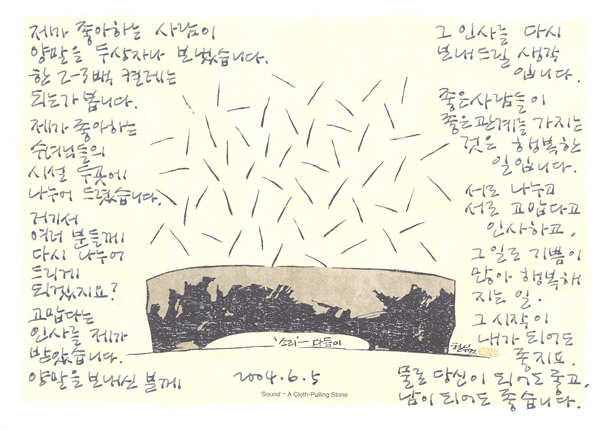 제가 좋아하는 사람이
양말을 두상자나 보냈습니다.
한 2-3백 켤레는
되는가 봅니다.
제가 좋아하는
수녀님들의
시설 두곳에
나누어 드렸습니다.
거기서
여러 분들께
다시 나누어
드리게
되겠지요?
고맙다는
인사를 제가
받았습니다.
양말을 보내신 분께
그 인사를 다시
보내드릴 생각
입니다.
좋은사람들이
좋은관계를 가지는
것은 행복한
일입니다.
서로 나누고
서로 고맙다고
인사하고,
그 일로 기쁨이
많아 행복해
지는 일.
그 시작이
내가 되어도
좋지요.
물론 당신이 되어도 좋고,
남이 되어도 좋습니다.
'소리'—다듬이
2004.6.5
'Sound' – A Cloth-Pulling Stone